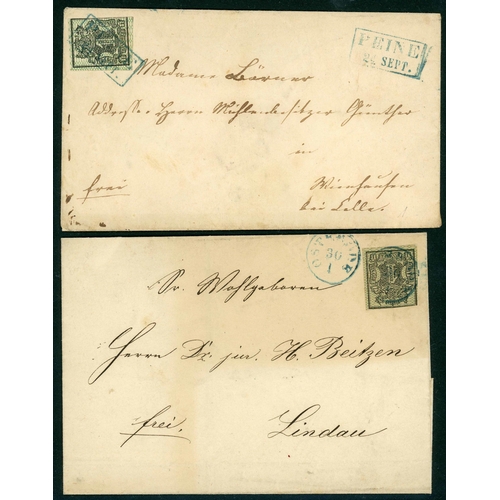 PEINE
SEPT.
Madame Börner
Addresse: Herrn Mühlenbesitzer Günther
in
frei
Wienhausen
bei Celle.
30
1
Sr. Wohlgeboren
Herrn Dr. jur. H. Beitzen
frei.
Lindau